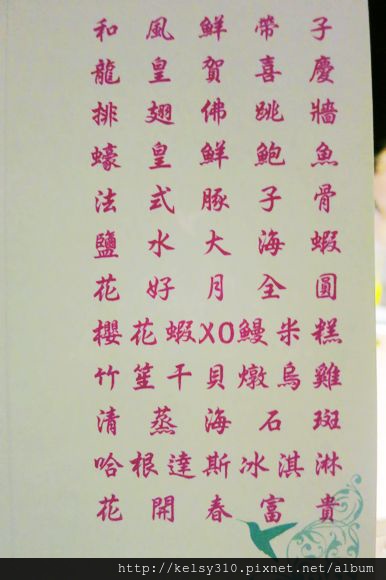 和風鮮帶子
龍皇賀喜慶
排翅佛跳牆
蠔皇鮮鮑魚
法式豚子骨
鹽水大海蝦
花好月全圓
櫻花蝦XO鰻米糕
竹笙干貝燉烏雞
清蒸海石斑
哈根達斯冰淇淋
花開春富貴
http://kelsy310.pixnet.net/album